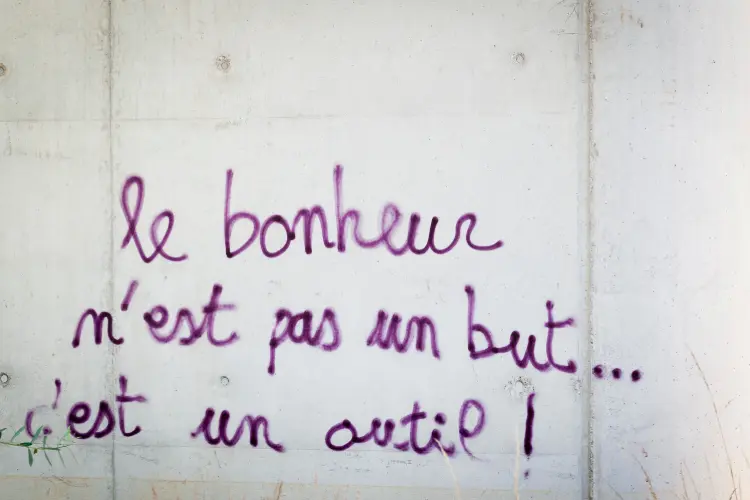 le bonheur
n'est pas un but...
c'est un outil !